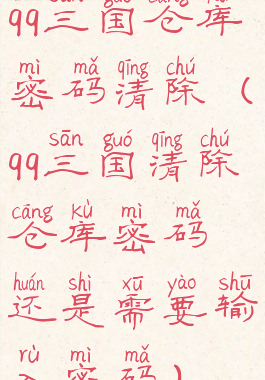 99三国仓库
mì mǎ qīng chú
密码清除（
sān guó qīng chú
99三国清除
cāng kù mì mǎ
仓库密码
huán shì xū yào shū
还是需要输
rù mì mǎ
入密码）